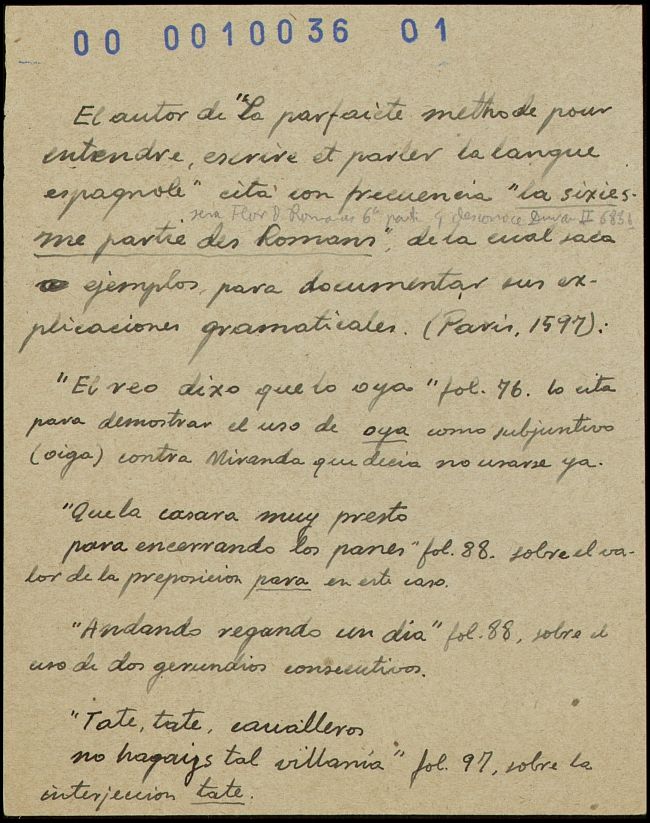 00 0010036 01
El autor de "La parfaicte methode pour
entendre, escrire et parler la langue
espagnole" cita con frecuencia "la sixies-
sera Flor d Romances 6ª parte q desconoce Duran II 683b
me partie des Romans", de la cual saca
ejemplos para documentar sus ex-
plicaciones gramaticales. (Paris, 1597):
"El reo dixo que lo oya" fol. 76. lo cita
para demostrar el uso de oya como subjuntivo
(oiga) contra Miranda que decia no usarse ya.
"Que la casara muy presto
para encerrando los panes" fol. 88. sobre el va-
lor de la preposicion para en este caso.
"Andando regando un dia" fol. 88, sobre el
uso de dos gerundios consecutivos.
"Tate, tate, caualleros
no hagays tal villania" fol. 97, sobre la
interjeccion tate.